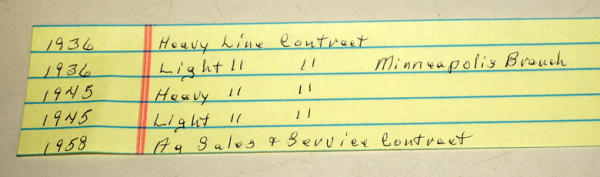 1936 Heavy Line Contract
1936 Light " " Minneapolis Branch
1945 Heavy " "
1945 Light " "
1958 Ag Sales & Service Contract